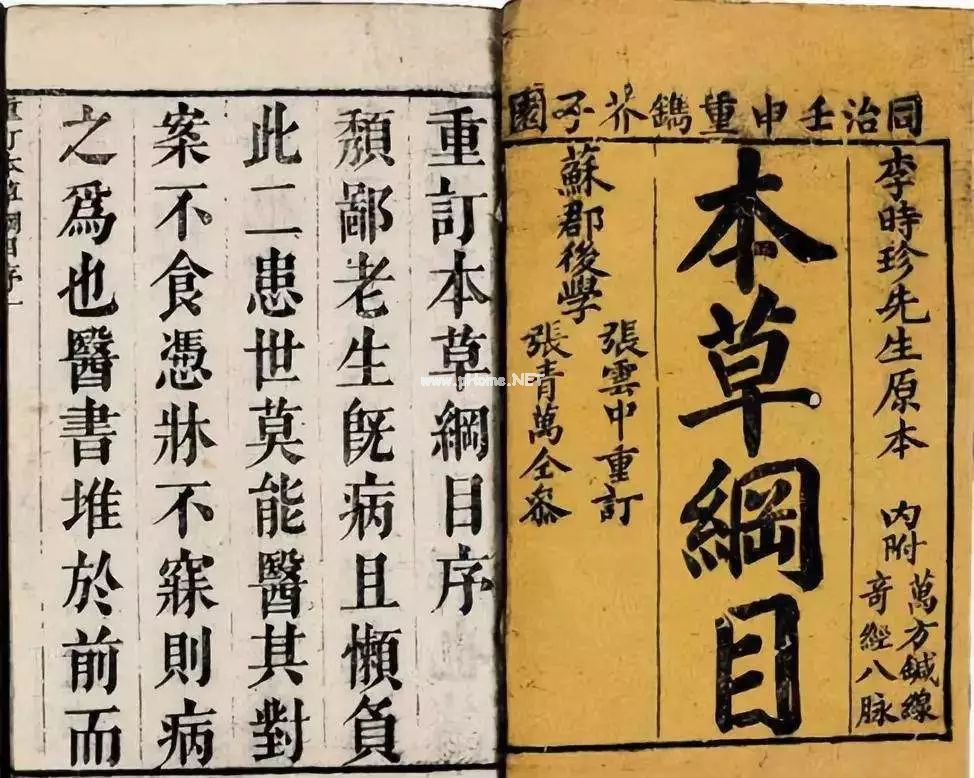 同治壬申重鐫芥子園
李時珍先生原本
內附
萬方鍼線
奇經八脉
本草綱目
蘇郡後學
張雲中重訂
張青萬仝參
重訂本草綱目序
頹鄙老生旣病且懶負
此二患世莫能醫其對
案不食憑牀不寐則病
之爲也醫書堆於前而
重訂本草綱目序一
www.pHome.NET